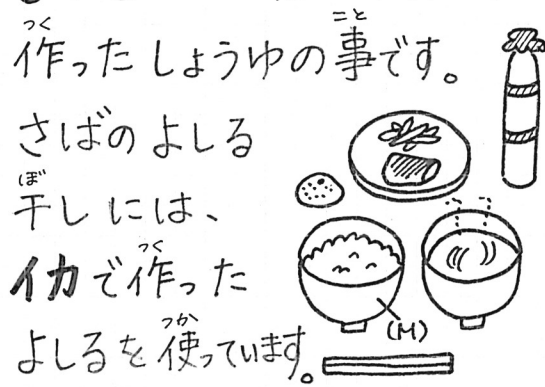 作ったしょうゆの事です。
さばのよしる
干しには、
イカで作った
よしるを使っています。
(M)